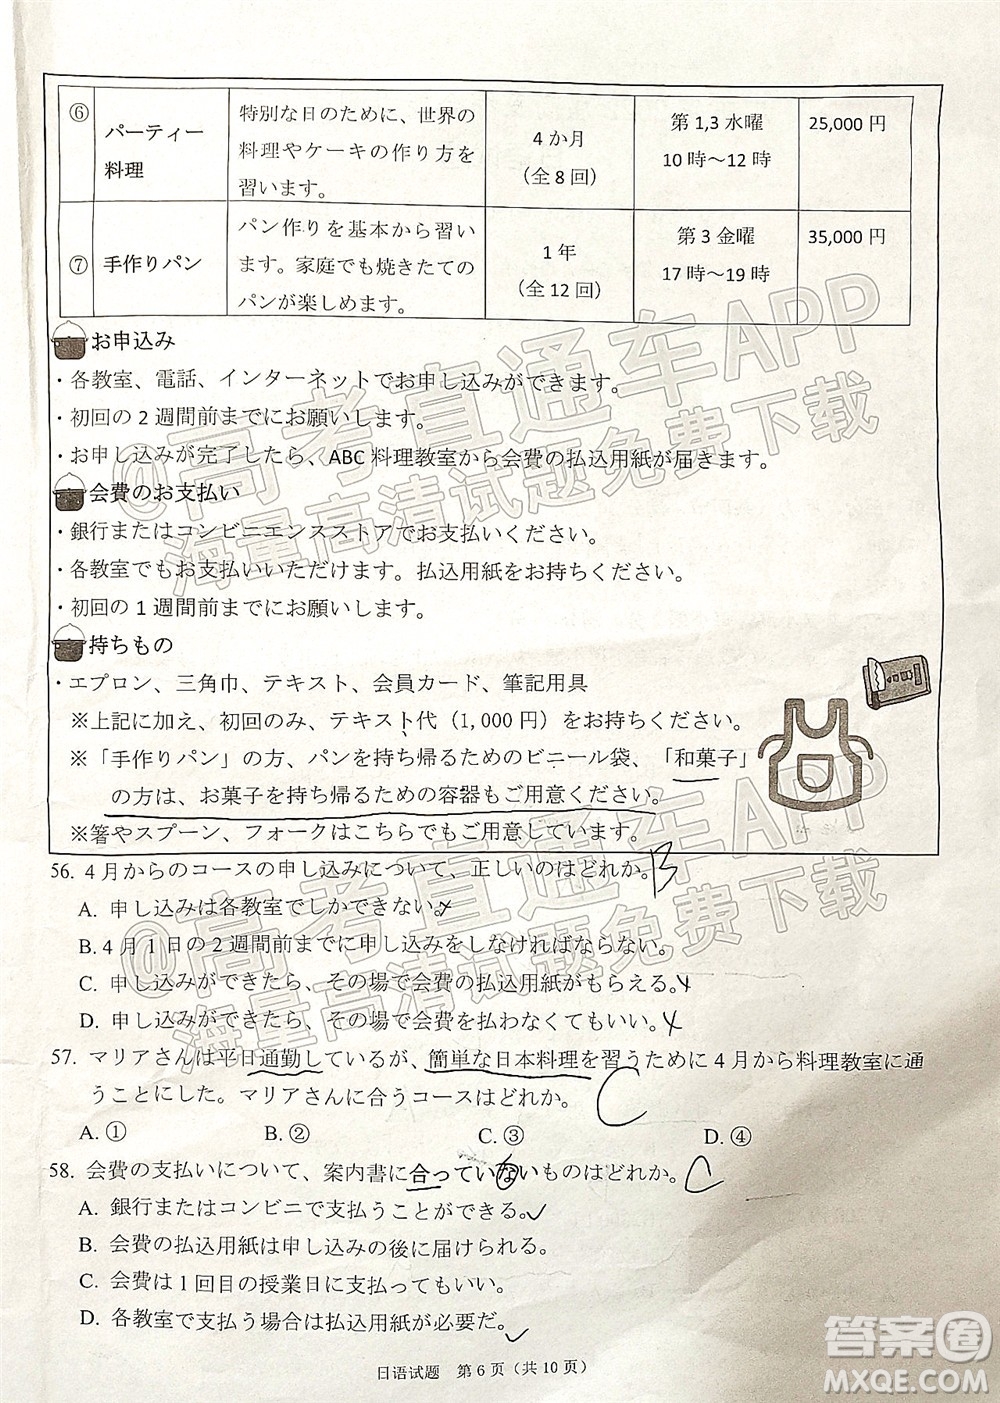 ⑥ パーティー料理 特別な日のために、世界の料理やケーキの作り方を習います。 4か月(全8回) 第1,3水曜 10時～12時 25,000円
⑦ 手作りパン パン作りを基本から習います。家庭でも焼きたてのパンが楽しめます。 1年(全12回) 第3金曜 17時～19時 35,000円
お申込み
・各教室、電話、インターネットでお申し込みができます。
・初回の2週間前までにお願いします。
・お申し込みが完了したら、ABC料理教室から会費の払込用紙が届きます。
会費のお支払い
・銀行またはコンビニエンスストアでお支払いください。
・各教室でもお支払いいただけます。払込用紙をお持ちください。
・初回の1週間前までにお願いします。
持ちもの
・エプロン、三角巾、テキスト、会員カード、筆記用具
※上記に加え、初回のみ、テキスト代（1,000円）をお持ちください。
※「手作りパン」の方、パンを持ち帰るためのビニール袋、「和菓子」
の方は、お菓子を持ち帰るための容器もご用意ください。
※箸やスプーン、フォークはこちらでもご用意しています。
56. 4月からのコースの申し込みについて、正しいのはどれか。B
A. 申し込みは各教室でしかできない。
B. 4月1日の2週間前までに申し込みをしなければならない。
C. 申し込みができたら、その場で会費の払込用紙がもらえる。
D. 申し込みができたら、その場で会費を払わなくてもいい。
57. マリアさんは平日通勤しているが、簡単な日本料理を習うために4月から料理教室に通
うことにした。マリアさんに合うコースはどれか。 C
A. ① B. ② C. ③ D. ④
58. 会費の支払いについて、案内書に合っていないものはどれか。 C
A. 銀行またはコンビニで支払うことができる。
B. 会費の払込用紙は申し込みの後に届けられる。
C. 会費は1回目の授業日に支払ってもいい。
D. 各教室で支払う場合は払込用紙が必要だ。
日语试题 第6页（共10页）
@高考直通车APP
海量高清试题免费下载
@高考直通车APP
海量高清试题免费下载
答案圈
MXQE.COM